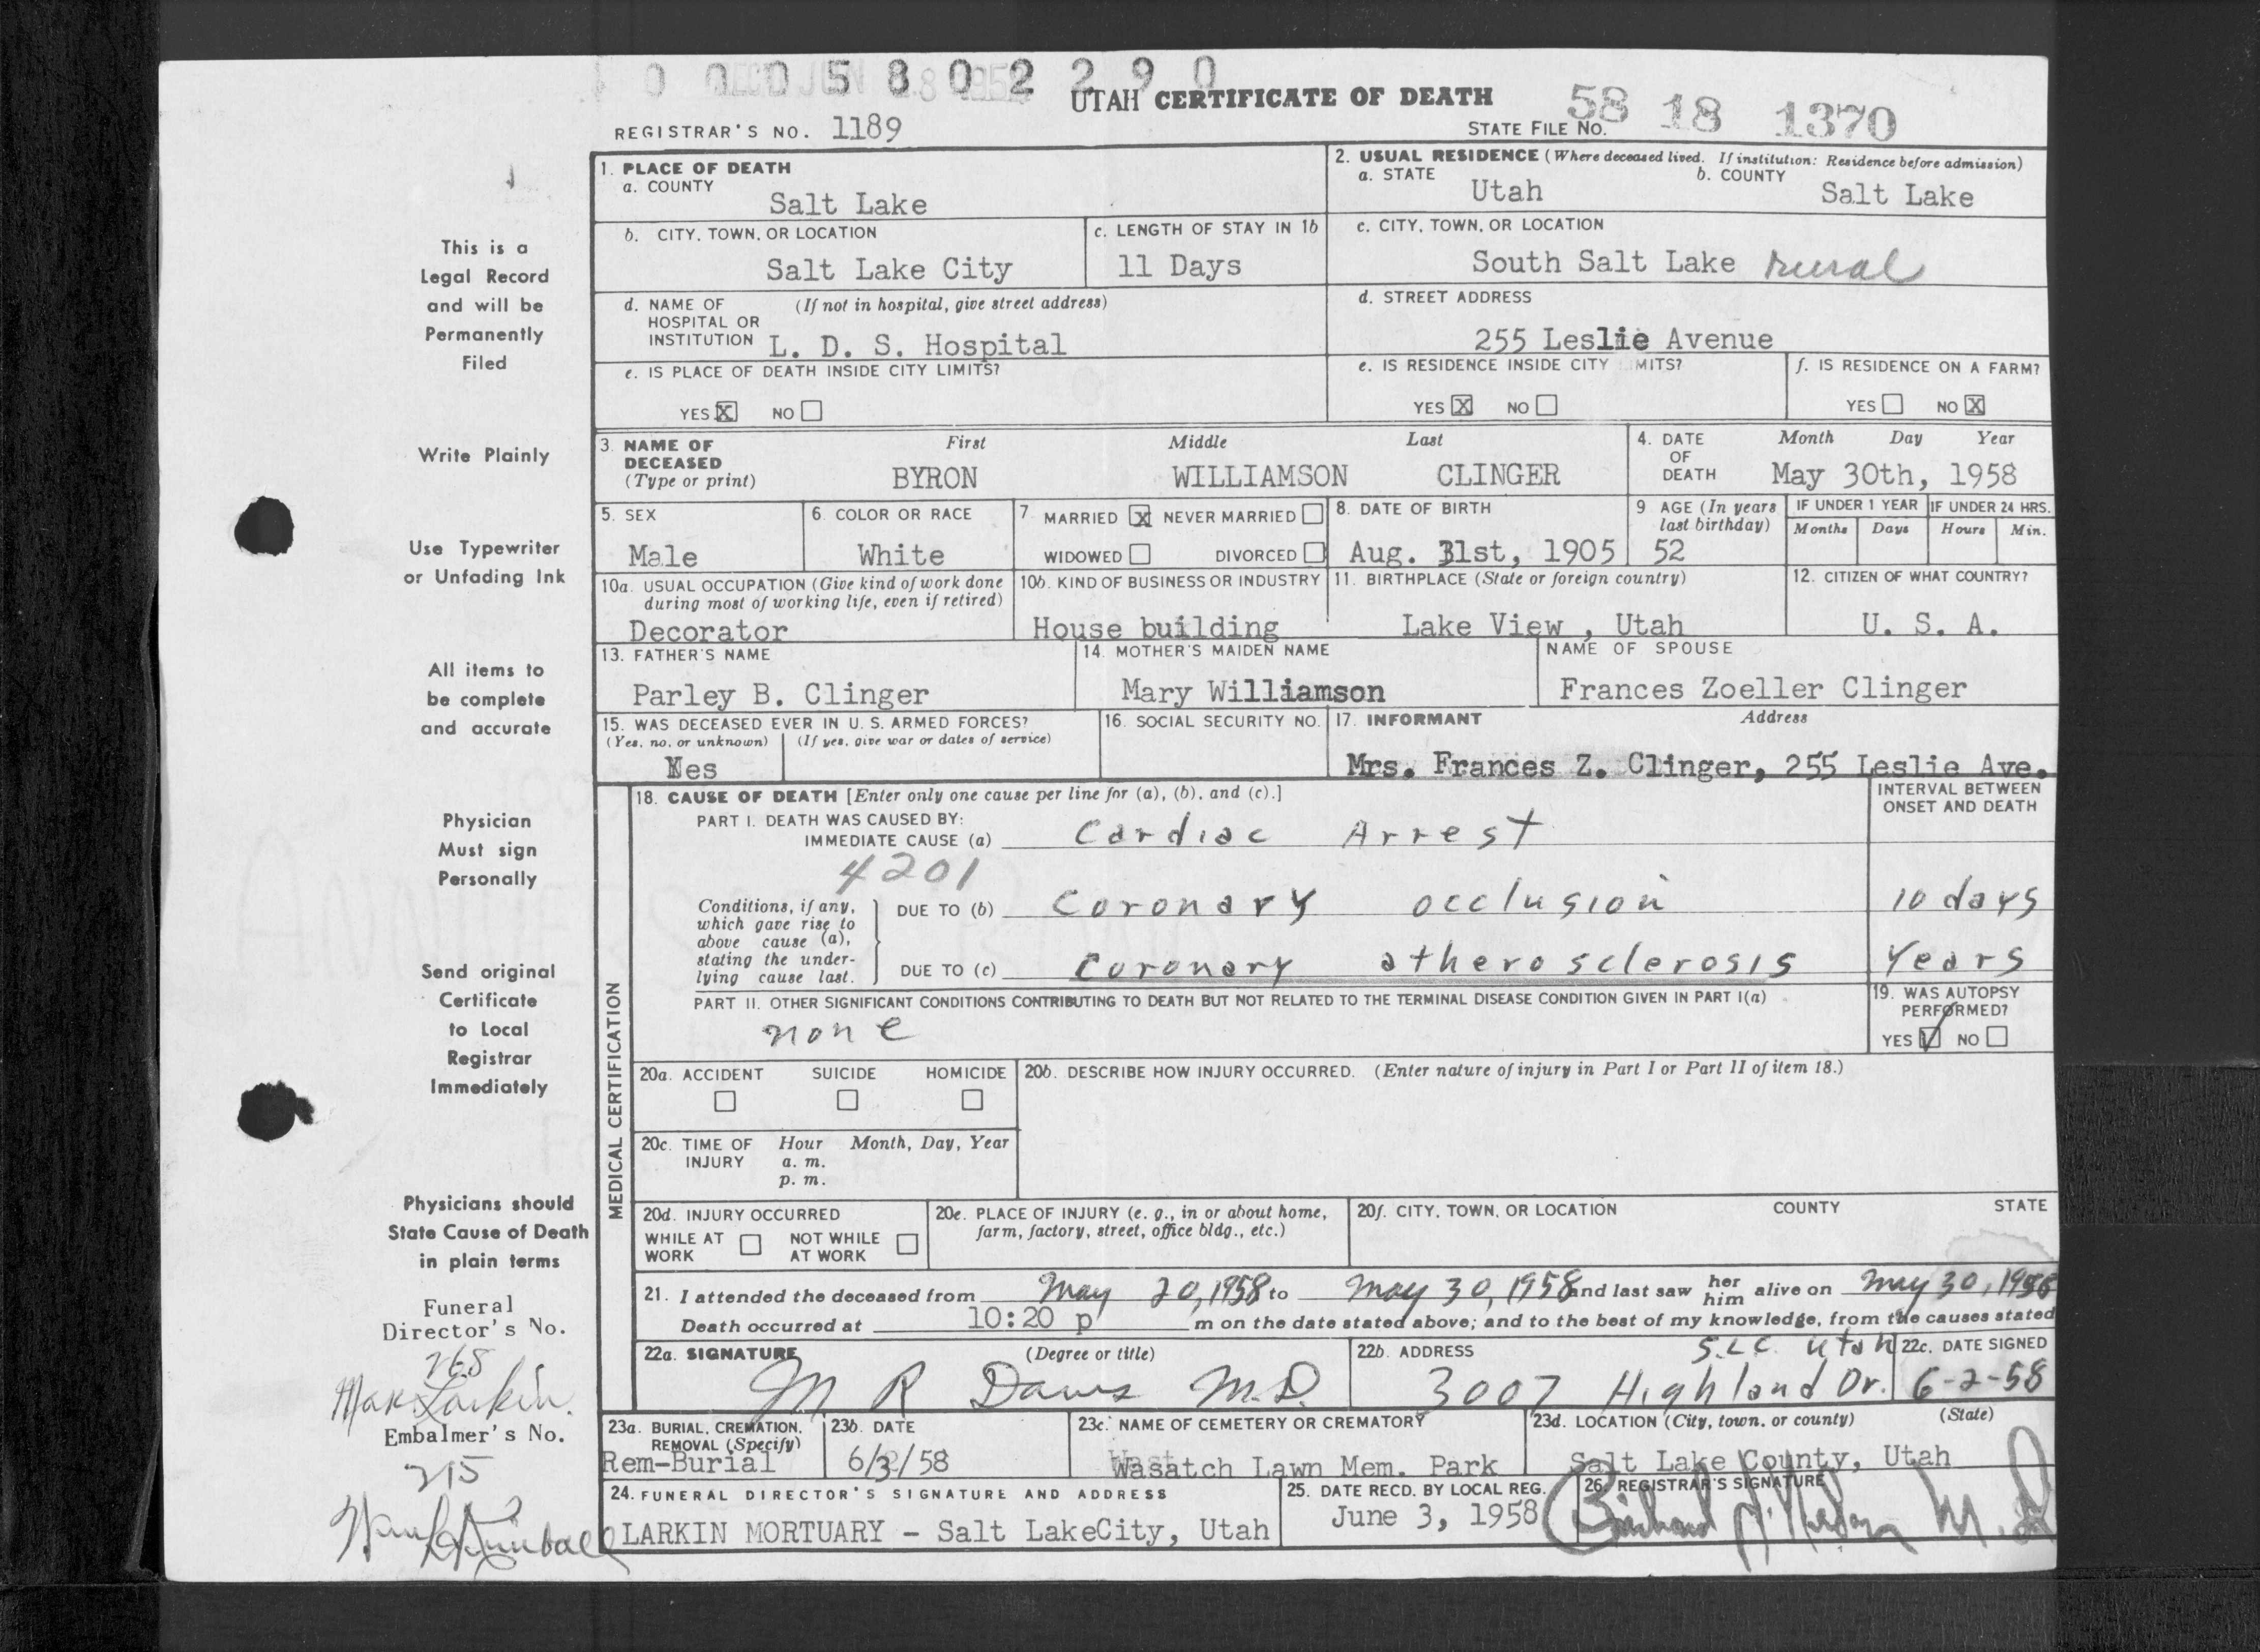 0 0 0 0 5 8 0 2 2 9 0
UTAH CERTIFICATE OF DEATH
58 18 1370
REGISTRAR'S NO. 1189
STATE FILE NO.
1. PLACE OF DEATH
a. COUNTY
Salt Lake
2. USUAL RESIDENCE (Where deceased lived. If institution: Residence before admission)
a. STATE
Utah
b. COUNTY
Salt Lake
b. CITY, TOWN, OR LOCATION
Salt Lake City
c. LENGTH OF STAY IN 1b
11 Days
c. CITY, TOWN, OR LOCATION
South Salt Lake rural
d. NAME OF HOSPITAL OR INSTITUTION
(If not in hospital, give street address)
L. D. S. Hospital
d. STREET ADDRESS
255 Leslie Avenue
e. IS PLACE OF DEATH INSIDE CITY LIMITS?
YES X NO
e. IS RESIDENCE INSIDE CITY MITS?
YES X NO
f. IS RESIDENCE ON A FARM?
YES NO X
3. NAME OF DECEASED
(Type or print)
First Middle Last
BYRON WILLIAMSON CLINGER
4. DATE OF DEATH
Month Day Year
May 30th, 1958
5. SEX
Male
6. COLOR OR RACE
White
7. MARRIED X NEVER MARRIED
WIDOWED DIVORCED
8. DATE OF BIRTH
Aug. 31st, 1905
9 AGE (In years last birthday)
52
IF UNDER 1 YEAR
Months Days
IF UNDER 24 HRS.
Hours Min.
10a. USUAL OCCUPATION (Give kind of work done
during most of working life, even if retired)
Decorator
10b. KIND OF BUSINESS OR INDUSTRY
House building
11. BIRTHPLACE (State or foreign country)
Lake View , Utah
12. CITIZEN OF WHAT COUNTRY?
U. S. A.
13. FATHER'S NAME
Parley B. Clinger
14. MOTHER'S MAIDEN NAME
Mary Williamson
NAME OF SPOUSE
Frances Zoeller Clinger
15. WAS DECEASED EVER IN U. S. ARMED FORCES?
(Yes, no, or unknown) (If yes, give war or dates of service)
16. SOCIAL SECURITY NO.
17. INFORMANT Address
Mrs. Frances Z. Clinger, 255 Leslie Ave.
MEDICAL CERTIFICATION
18. CAUSE OF DEATH [Enter only one cause per line for (a), (b), and (c).]
INTERVAL BETWEEN
ONSET AND DEATH
PART I. DEATH WAS CAUSED BY:
IMMEDIATE CAUSE (a) Cardiac Arrest
4201
Conditions, if any,
which gave rise to
above cause (a),
stating the under-
lying cause last.
DUE TO (b) Coronary occlusion 10 days
DUE TO (c) Coronary atherosclerosis Years
PART II. OTHER SIGNIFICANT CONDITIONS CONTRIBUTING TO DEATH BUT NOT RELATED TO THE TERMINAL DISEASE CONDITION GIVEN IN PART I(a)
none
19. WAS AUTOPSY
PERFORMED?
YES NO
20a. ACCIDENT SUICIDE HOMICIDE
20b. DESCRIBE HOW INJURY OCCURRED. (Enter nature of injury in Part I or Part II of item 18.)
20c. TIME OF INJURY
Hour Month, Day, Year
a. m.
p. m.
20d. INJURY OCCURRED
WHILE AT WORK
NOT WHILE AT WORK
20e. PLACE OF INJURY (e. g., in or about home,
farm, factory, street, office bldg., etc.)
20f. CITY, TOWN, OR LOCATION COUNTY STATE
21. I attended the deceased from May 20, 1958 to May 30, 1958 and last saw her him alive on May 30, 1958
Death occurred at 10:20 p m on the date stated above; and to the best of my knowledge, from the causes stated
22a. SIGNATURE (Degree or title)
M R Davis M.D.
22b. ADDRESS
S.L.C. Utah
3007 Highland Dr.
22c. DATE SIGNED
6-2-58
23a. BURIAL, CREMATION,
REMOVAL (Specify)
Rem-Burial
23b. DATE
6/3/58
23c. NAME OF CEMETERY OR CREMATORY
Wasatch Lawn Mem. Park
23d. LOCATION (City, town, or county) (State)
Salt Lake County, Utah
24. FUNERAL DIRECTOR'S SIGNATURE AND ADDRESS
LARKIN MORTUARY - Salt LakeCity, Utah
25. DATE RECD. BY LOCAL REG.
June 3, 1958
26. REGISTRAR'S SIGNATURE
This is a
Legal Record
and will be
Permanently
Filed
Write Plainly
Use Typewriter
or Unfading Ink
All items to
be complete
and accurate
Physician
Must sign
Personally
Send original
Certificate
to Local
Registrar
Immediately
Physicians should
State Cause of Death
in plain terms
Funeral
Director's No.
268
Max Larkin
Embalmer's No.
215